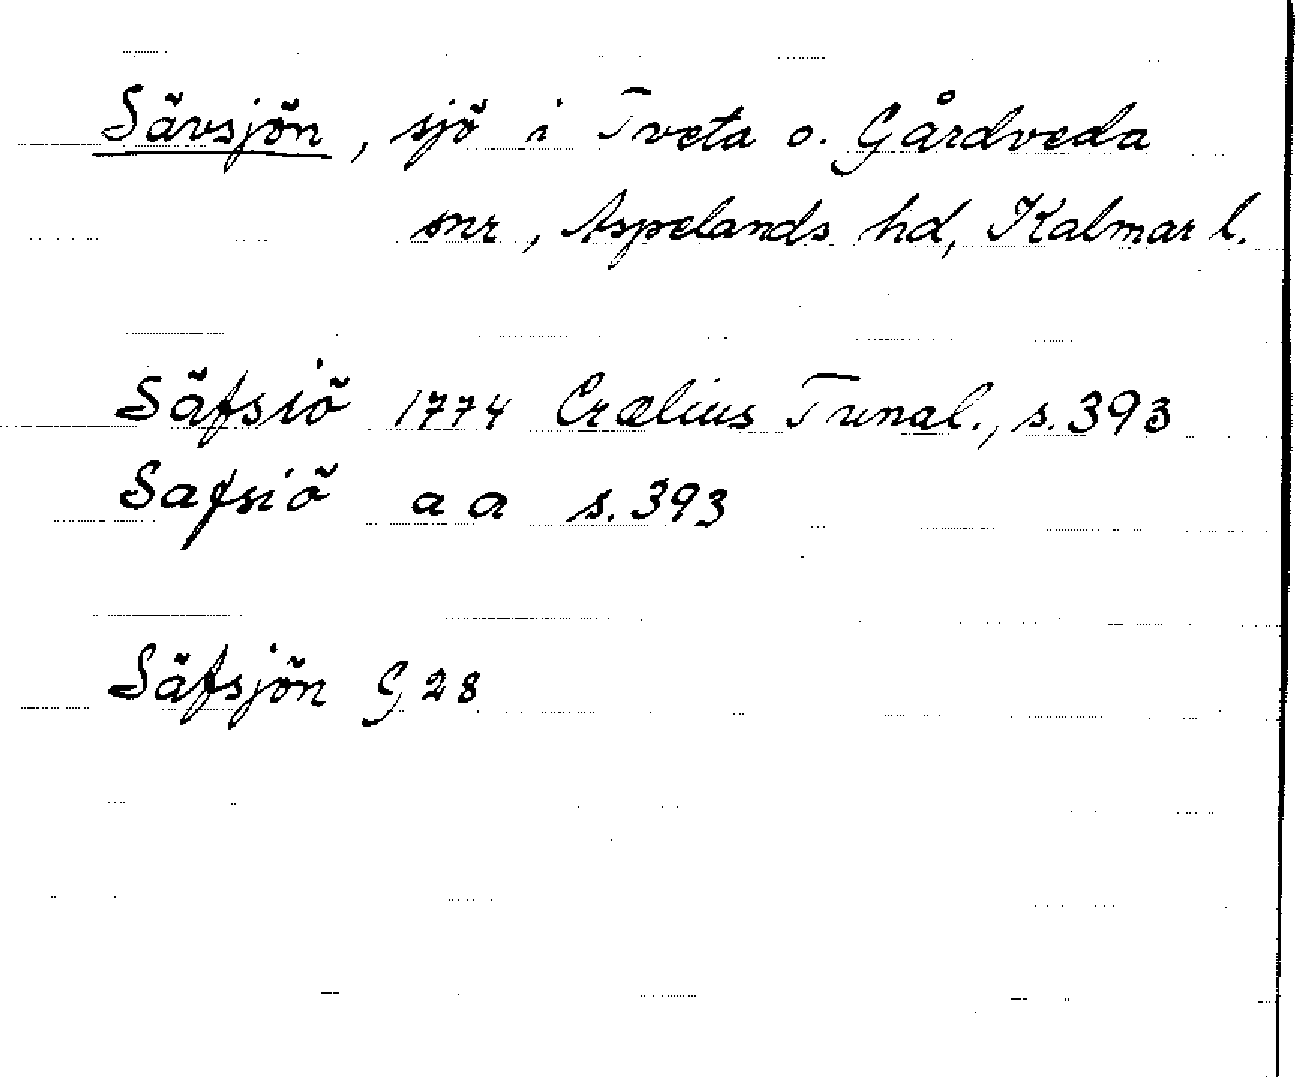 Sävsjön, sjö i Tveta o. Gårdveda
snr, Aspelands hd, Kalmar l.
Säfsiö 1774 Crælius Tunal., s. 393
Safsiö a a s. 393
Säfsjön G 28